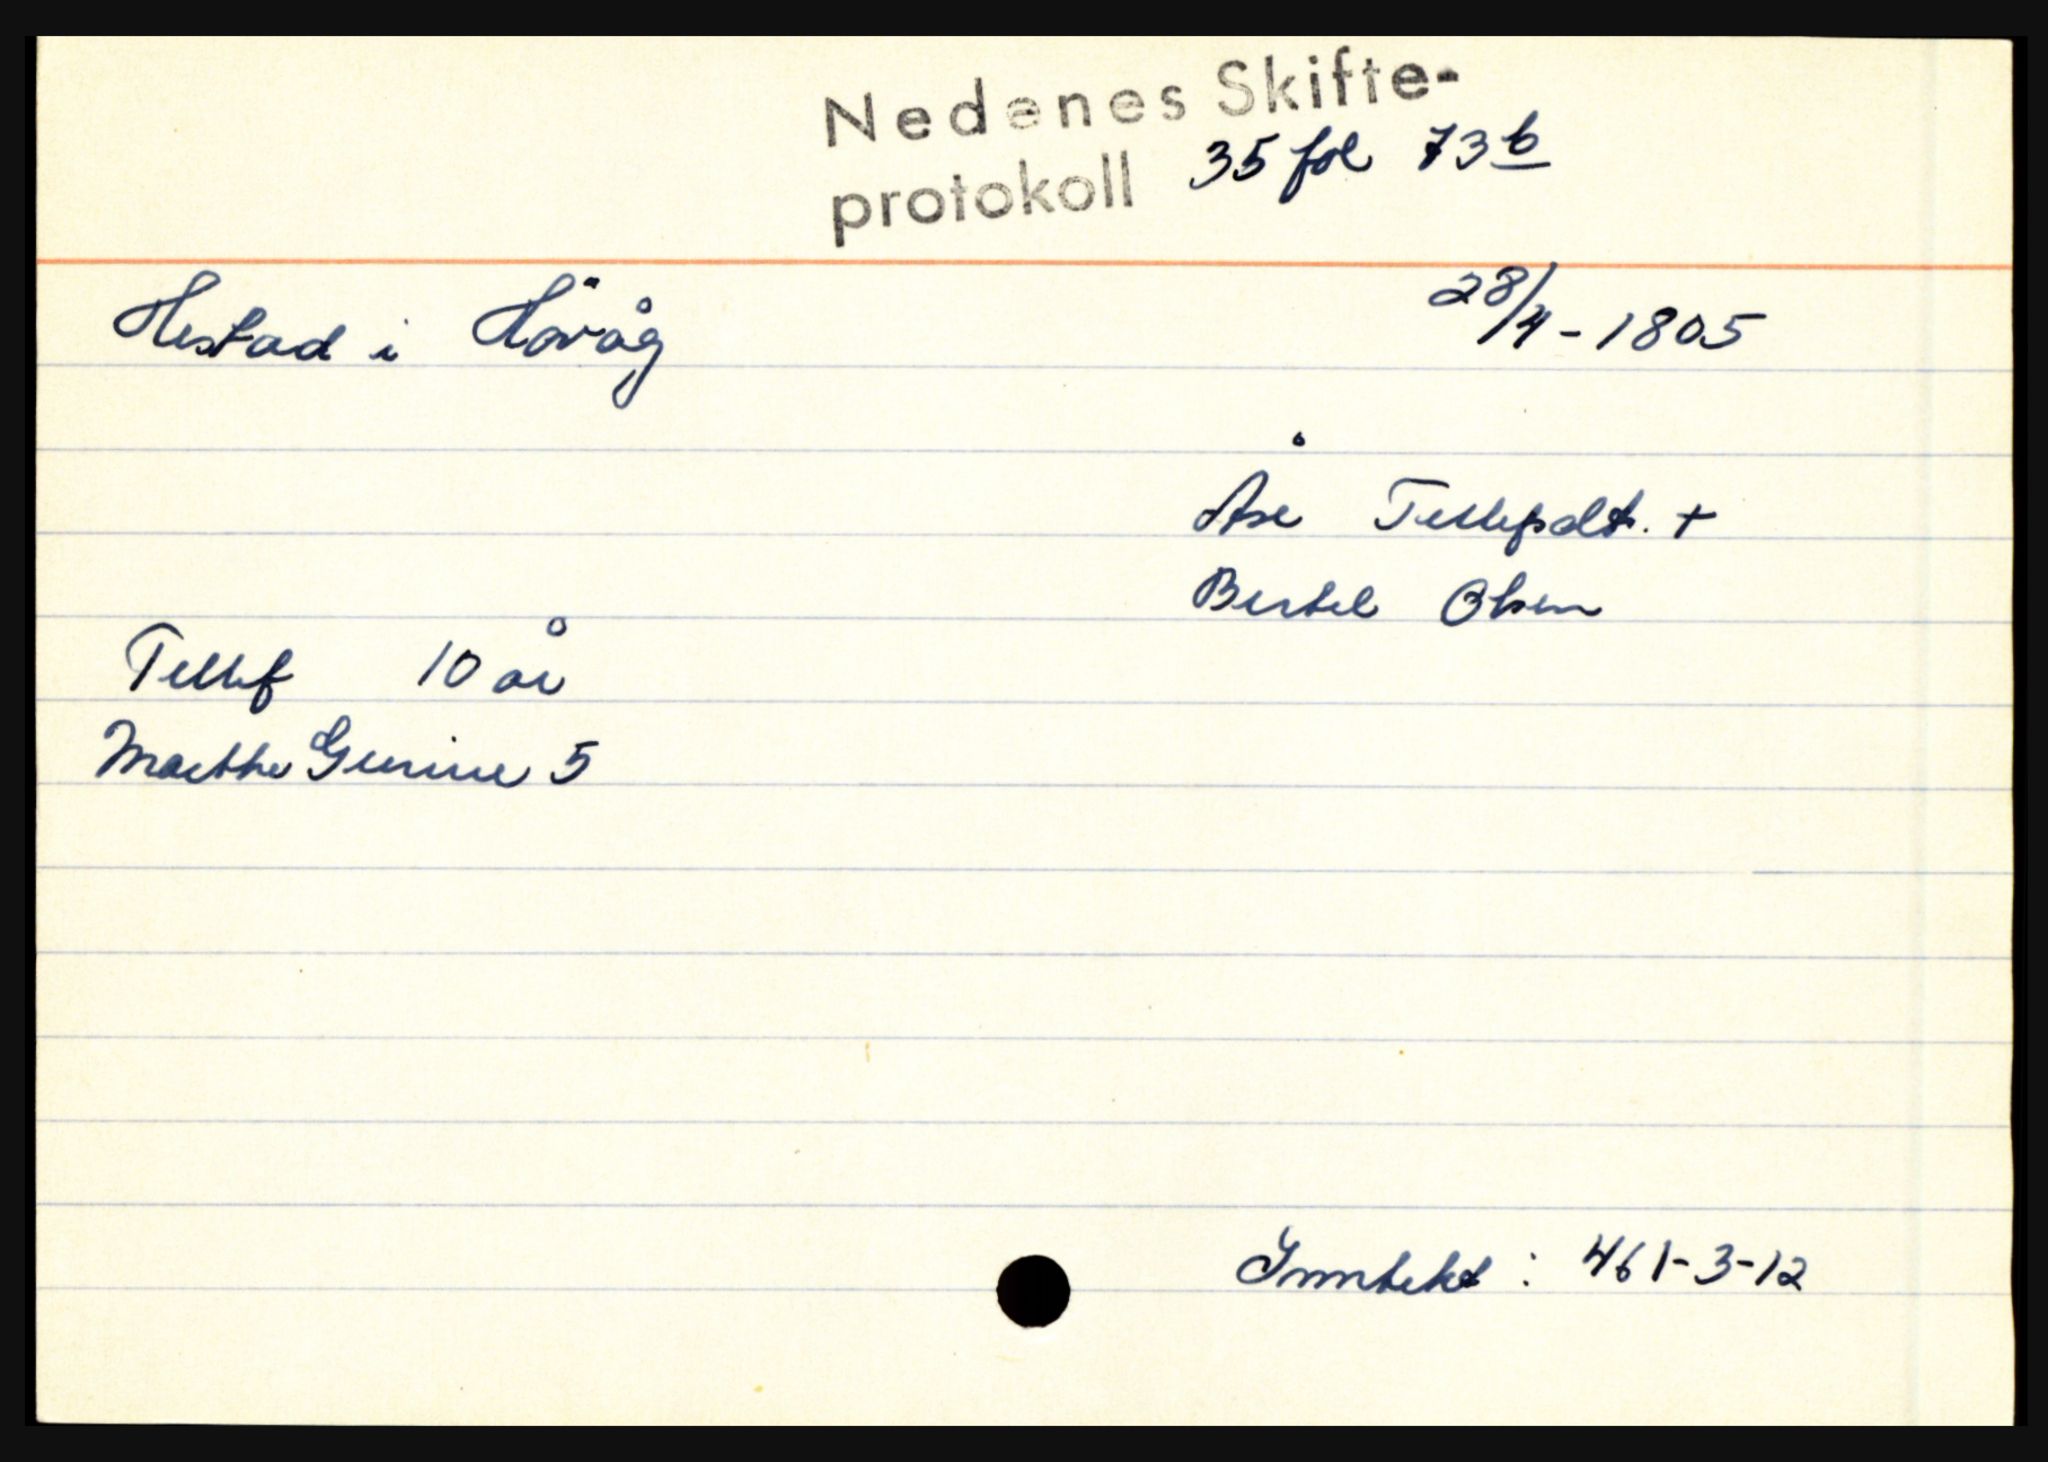 Nedenes Skifte-
protokoll 35 fol 73 b
Hestad i Höväg
28/4-1805
Åse Tellefsdt. +
Bertel Olsen
Tellef 10 år
Marthe Gunine 5
Inntekt : 461-3-12